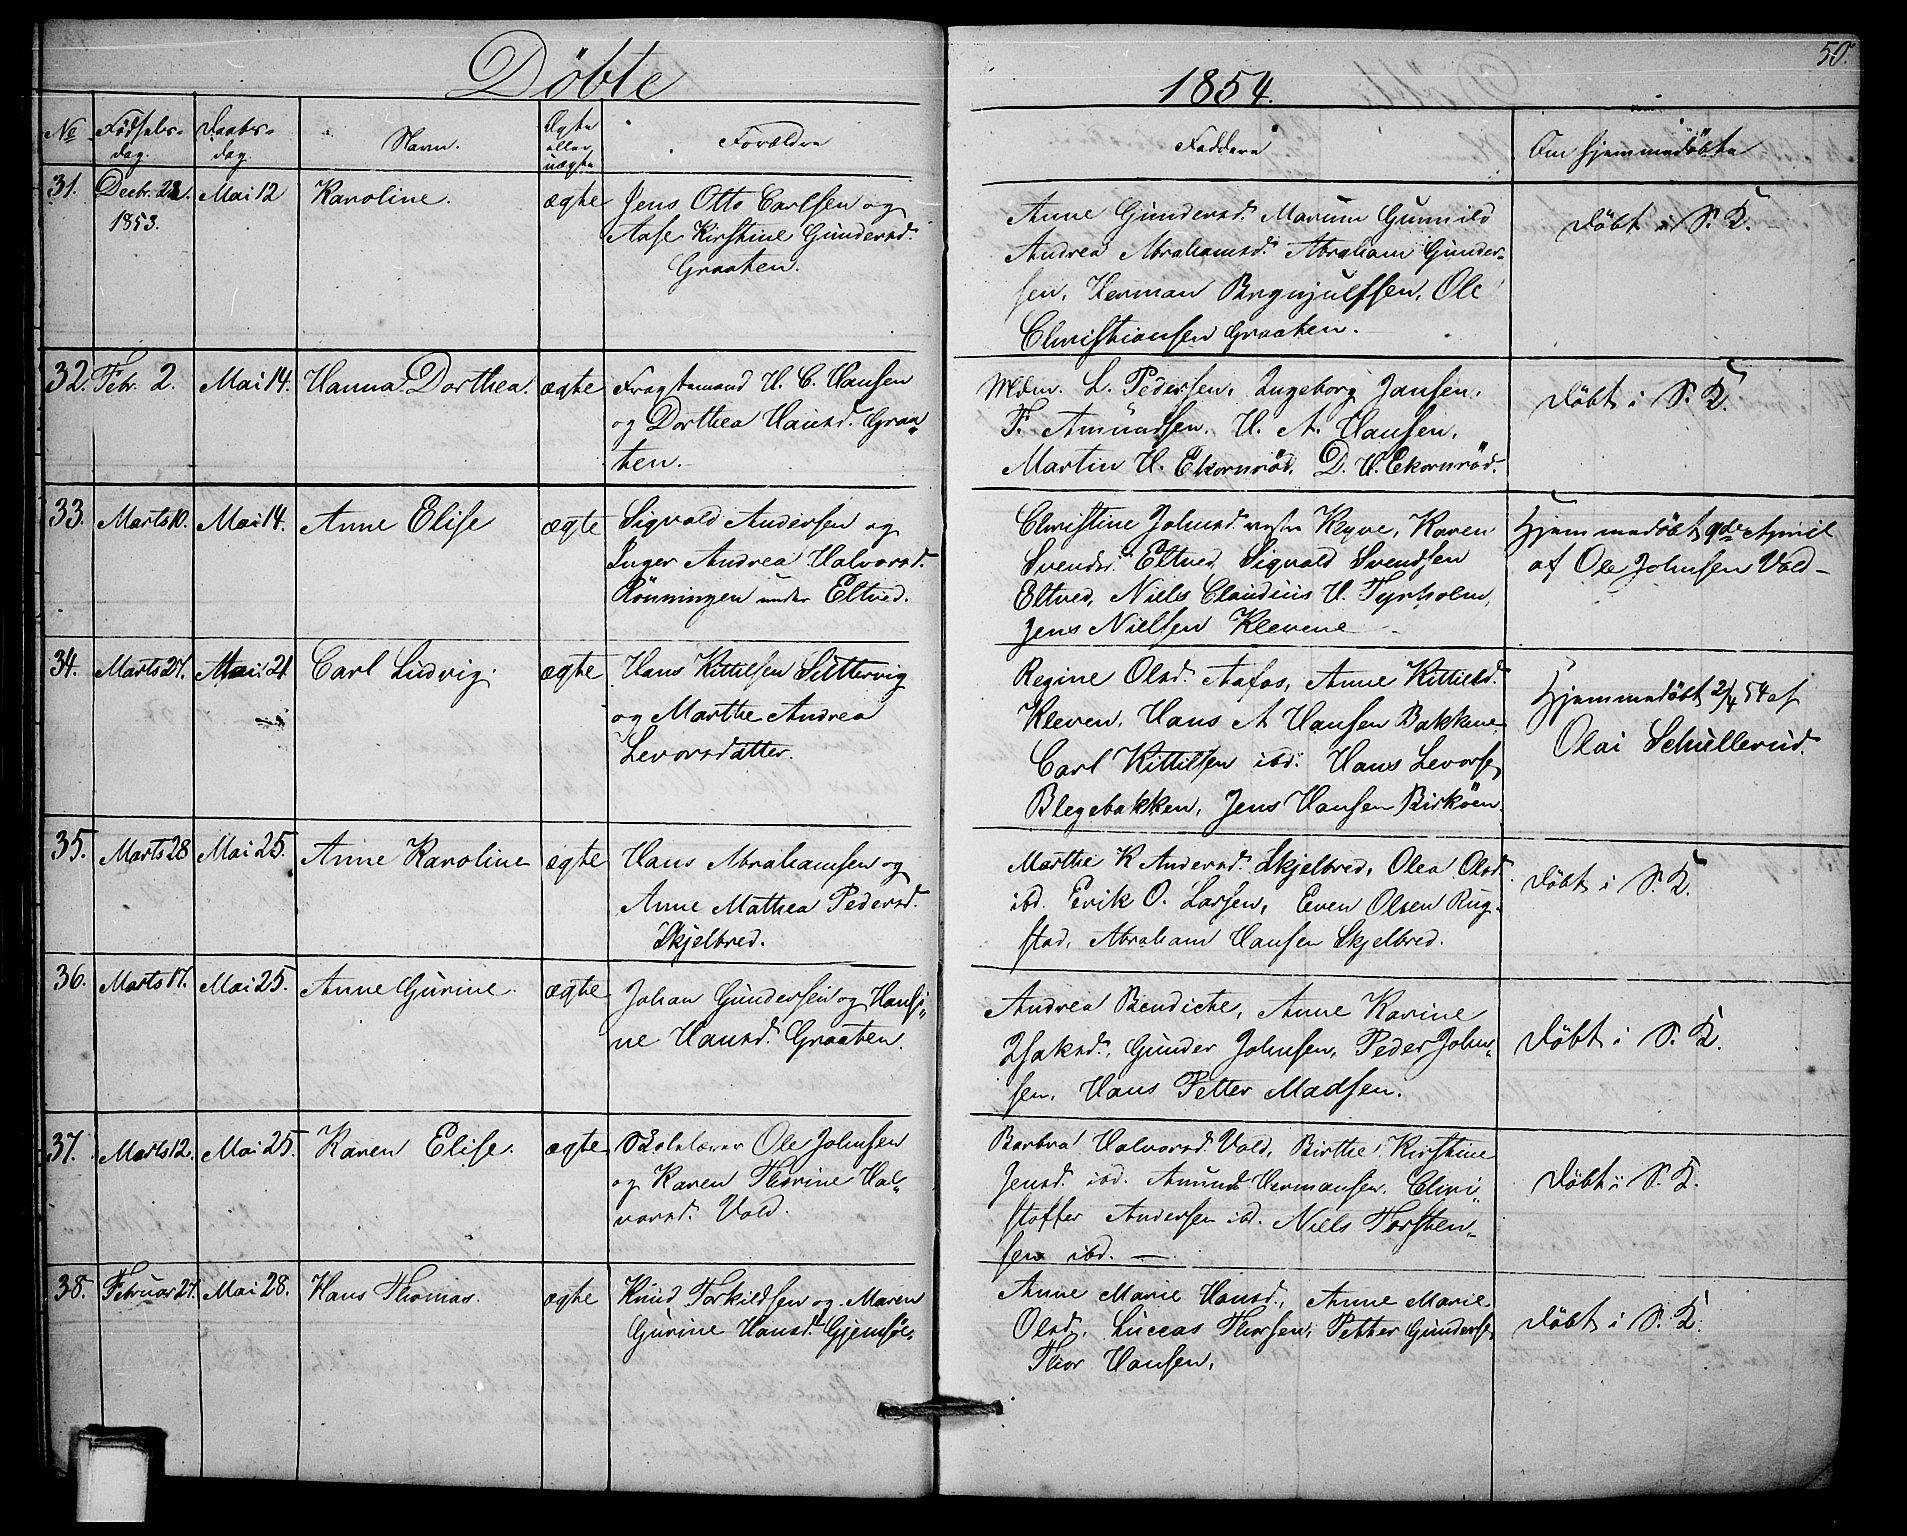 Döbte
1854.
50.
No Fødselsdag. Daabsdag. Navn. Ægte eller uægte Forældre Faddere Om hjemmedöbte
31. Decbr. 28. 1853. Mai 12 Karoline. ægte
Jens Otto Carlsen og
Aase Kirstine Gundersd.
Graaten.
Anne Gundersd. Gunnild
Andrea Abrahamsd. Abraham Gunder-
sen, Herman Brynjulfsen, Ole
Christiansen Graaten.
Döbt i S. K.
32. Febr. 2. Mai 14. Hanna Dorthea. ægte
Fragtemand H. C. Hansen
og Dorthea Hansd. Graa„
ten.
Mdm. L. Pedersen, Ingeborg Jansen,
F. Amundsen, H. A. Hansen,
Martin H. Ekornröd, D. H. Ekornröd.
Döbt i S. K.
33. Marts 10. Mai 14. Anne Elise ægte
Sigvald Andersen og
Inger Andrea Halvorsd.
Rönningen under Eltved.
Christine Johnsd. vestre Keyve, Karen
Svendsd. Eltved, Sigvald Svendsen
Eltved, Niels Claudius H. Tyrholm,
Jens Nielsen Klevene
Hjemmedöbt 9de April
af Ole Johnsen Vold
34. Marts 27. Mai 21 Carl Ludvig. ægte
Hans Kittilsen Sittervig
og Marthe Andrea
Levorsdatter.
Regine Olsd. Aafos, Anne Kittilsd.
Kleven, Hans A Hansen Bakkene
Carl Kittilsen ibd. Hans Levorse
Blegebakken, Jens Hansen Birköen
Hjemmedöbt 2/4 54 af
Olai Schullerud.
35. Marts 28 Mai 25. Anne Karoline ægte
Hans Abrahamsen og
Anne Mathea Pedersd.
Skjelbred.
Marthe K Andersd. Skjelbred, Olea Olsd.
ibd. Eerik O. Larsen, Even Olsen Rug-
stad, Abraham Hansen Skjelbred.
Döbt i S. K.
36. Marts 17. Mai 25. Anne Gurine. ægte
Johan Gundersen og Hansi„
ne Hansd. Graaten.
Andrea Bendicte, Anne Karine
Isaksd., Gunder Johnsen, Peder John„
sen, Hans Petter Madsen.
Döbt i S. K.
37. Marts 12. Mai 25. Karen Elise. ægte
Skolelærer Ole Johnsen
og Karen Thorine Hal„
vorsd. Vold.
Barbra Halvorsd. Vold, Birthe Kirstine
Jensd. ibd. Amund Hermansen, Chri„
stoffer Andersen ibd. Niels Torsten„
sen ibd. —
Döbt i S. K.
38. Februar 27. Mai 28. Hans Thomas. ægte
Knud Torkildsen og Maren
Gurine Hansd. Gjemsöe.
Anne Marie Hansd., Anne Marie
Olsd., Luccas Thorsen, Petter Gunderse
Thor Hansen,
Döbt i S. K.